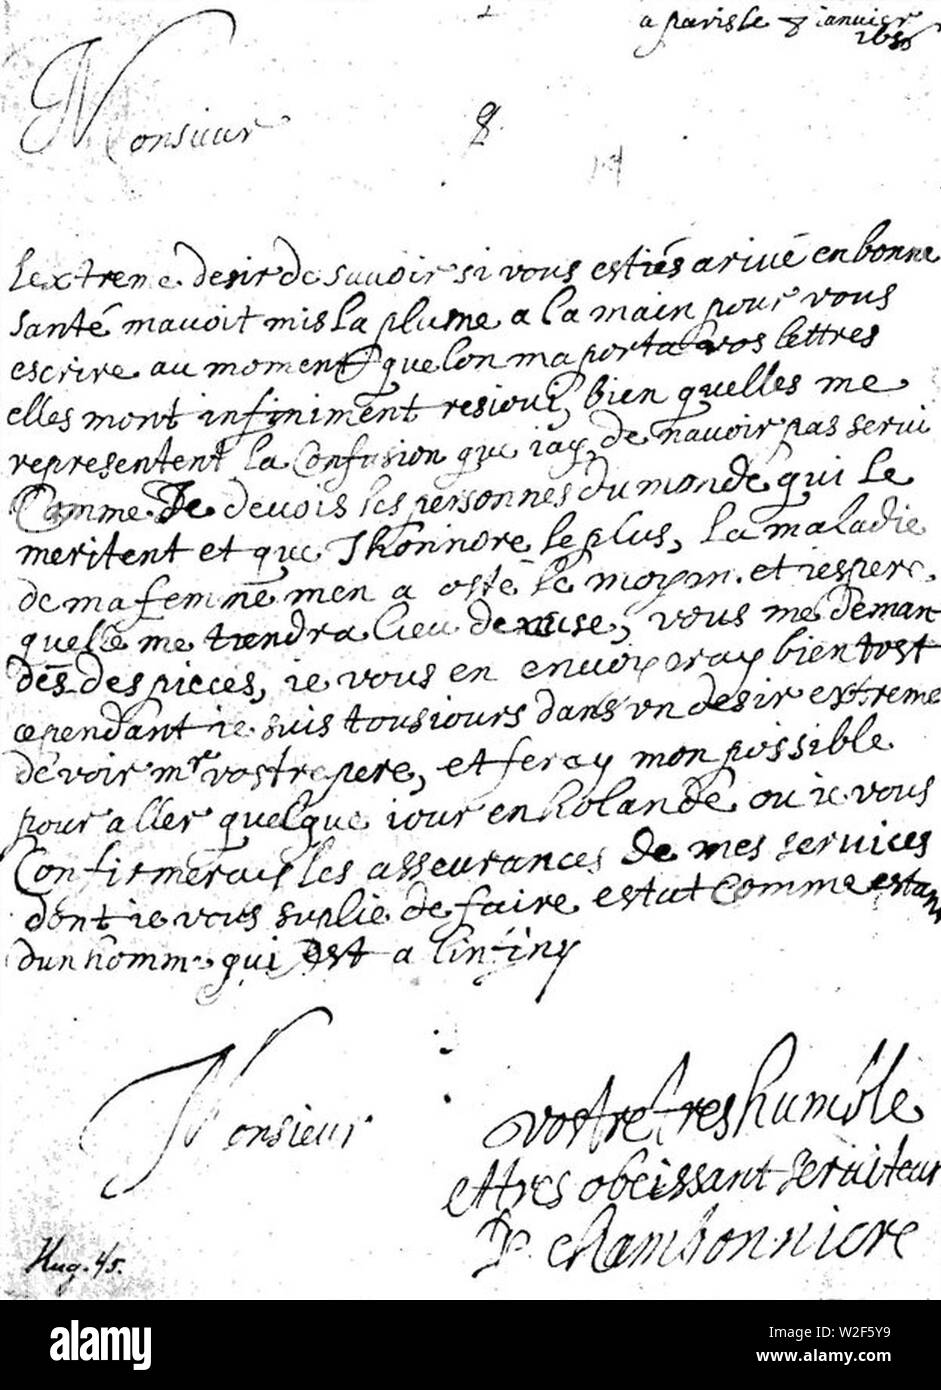 a paris le 8 ianvier
1656
Monsieur
8
lextreme desir de sauoir si vous estiés arivé en bonne
santé mauoit mis la plume a la main pour vous
escrire au moment que lon ma porta vos lettres
elles mont infiniment resioui, bien quelles me
representent la Confusion que iay de nauoir pas serui
Comme Je deuois les personnes du monde qui le
meritent et que Jhonnore le plus, la maladie
de ma femme men a osté le moyen et iespere
quelle me tiendra lieu dexcuse, vous me deman
dés des pieces, ie vous en enuoyray bien tost
cependant ie suis tousiours dans vn desir extreme
de voir mr vostre pere, et feray mon possible
pour aller quelque iour en holande ou ie vous
Confirmerais les asseurances de mes services
dont ie vous suplie de faire estat Comme estant
dun homme qui est a linfiny
Monsieur
vostre tres humble
et tres obeissant seruiteur
chambonniere
Hug. 45.
alamy
Image ID: W2F5Y9
www.alamy.com